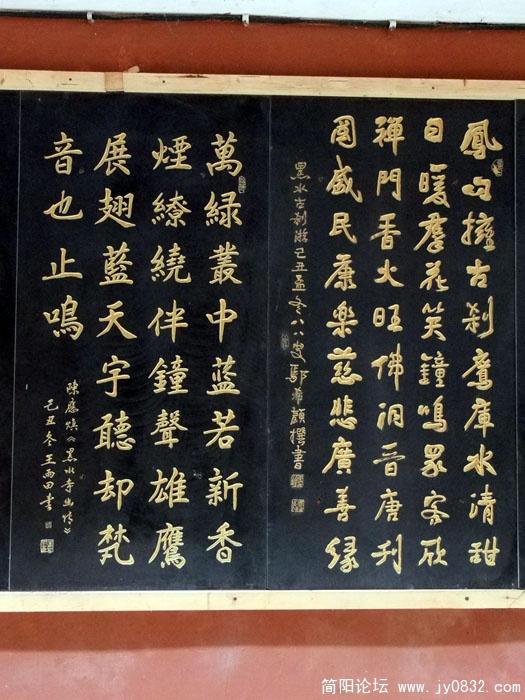 鳳山擁古刹鷹庫水清甜
日暖羣花笑鐘鳴眾客欣
禪門香火旺佛洞晋唐刊
國盛民康樂慈悲廣善緣
黑水古刹游己丑孟冬八八叟鄢顏撰書
萬緑叢中蓝若新香
煙繚繞伴鐘聲雄鷹
展翅藍天宇聽却梵
音也止鳴
陳應《黑水寺幽情》
己丑冬王雨田書
简阳论坛 www.jy0832.com